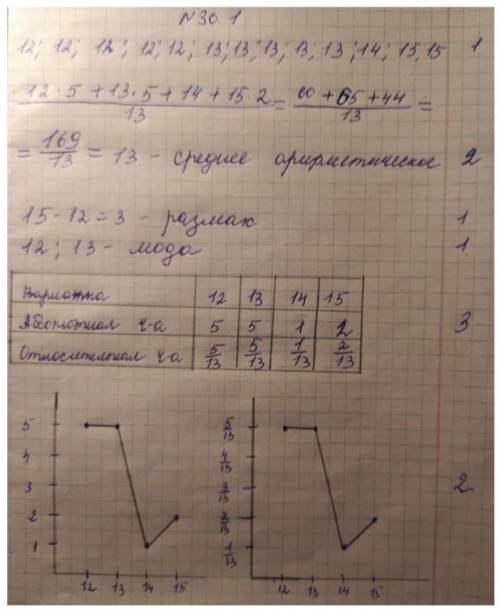 N30.1
12; 12; 12; 12; 12; 13; 13; 13; 13; 13; 14; 15, 15 1
12·5 + 13·5 + 14 + 15·2 / 13 = 60 + 65 + 44 / 13 =
= 169/13 = 13 - среднее арифметическое 2
15-12=3 - размах 1
12; 13 - мода 1
Варианта 12 13 14 15
Абсолютная ч-а 5 5 1 2 3
Относительная ч-а 5/13 5/13 1/13 2/13
5 5/13
4 4/13
3 3/13 2
2 2/13
1 1/13
12 13 14 15 12 13 14 15